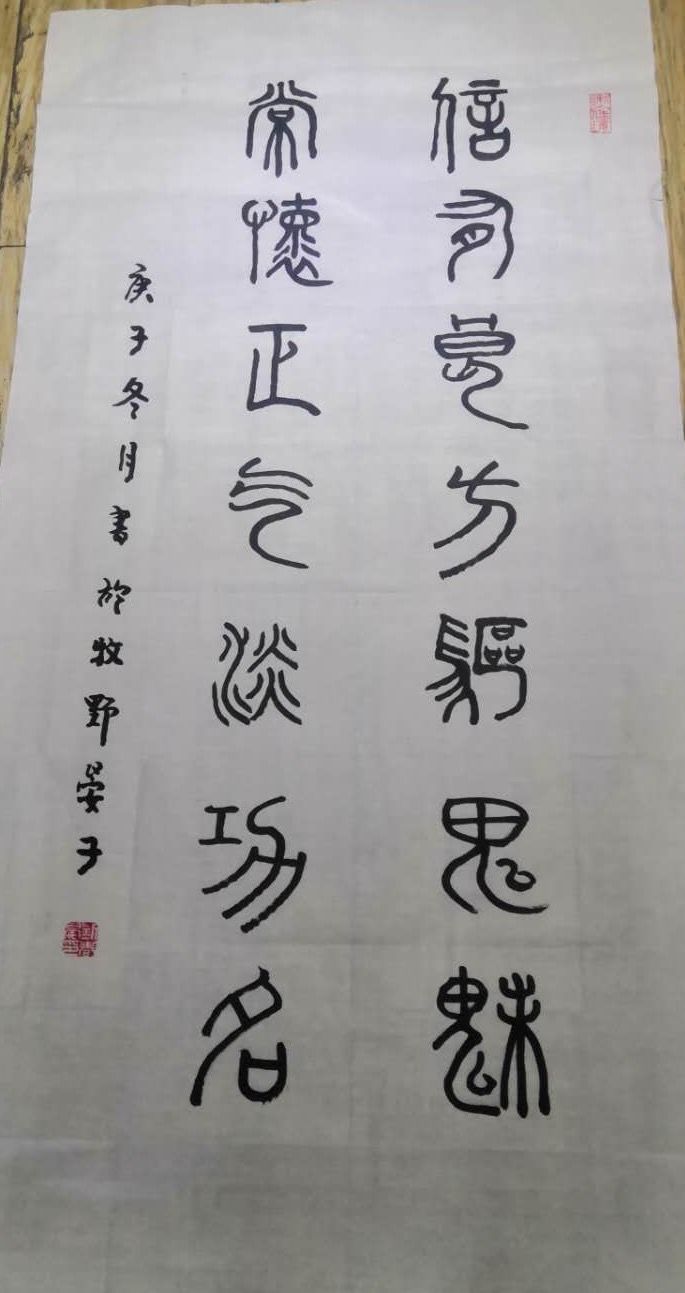 信有良方驅鬼魅
常懷正气淡功名
庚子冬月書於牧野晏子